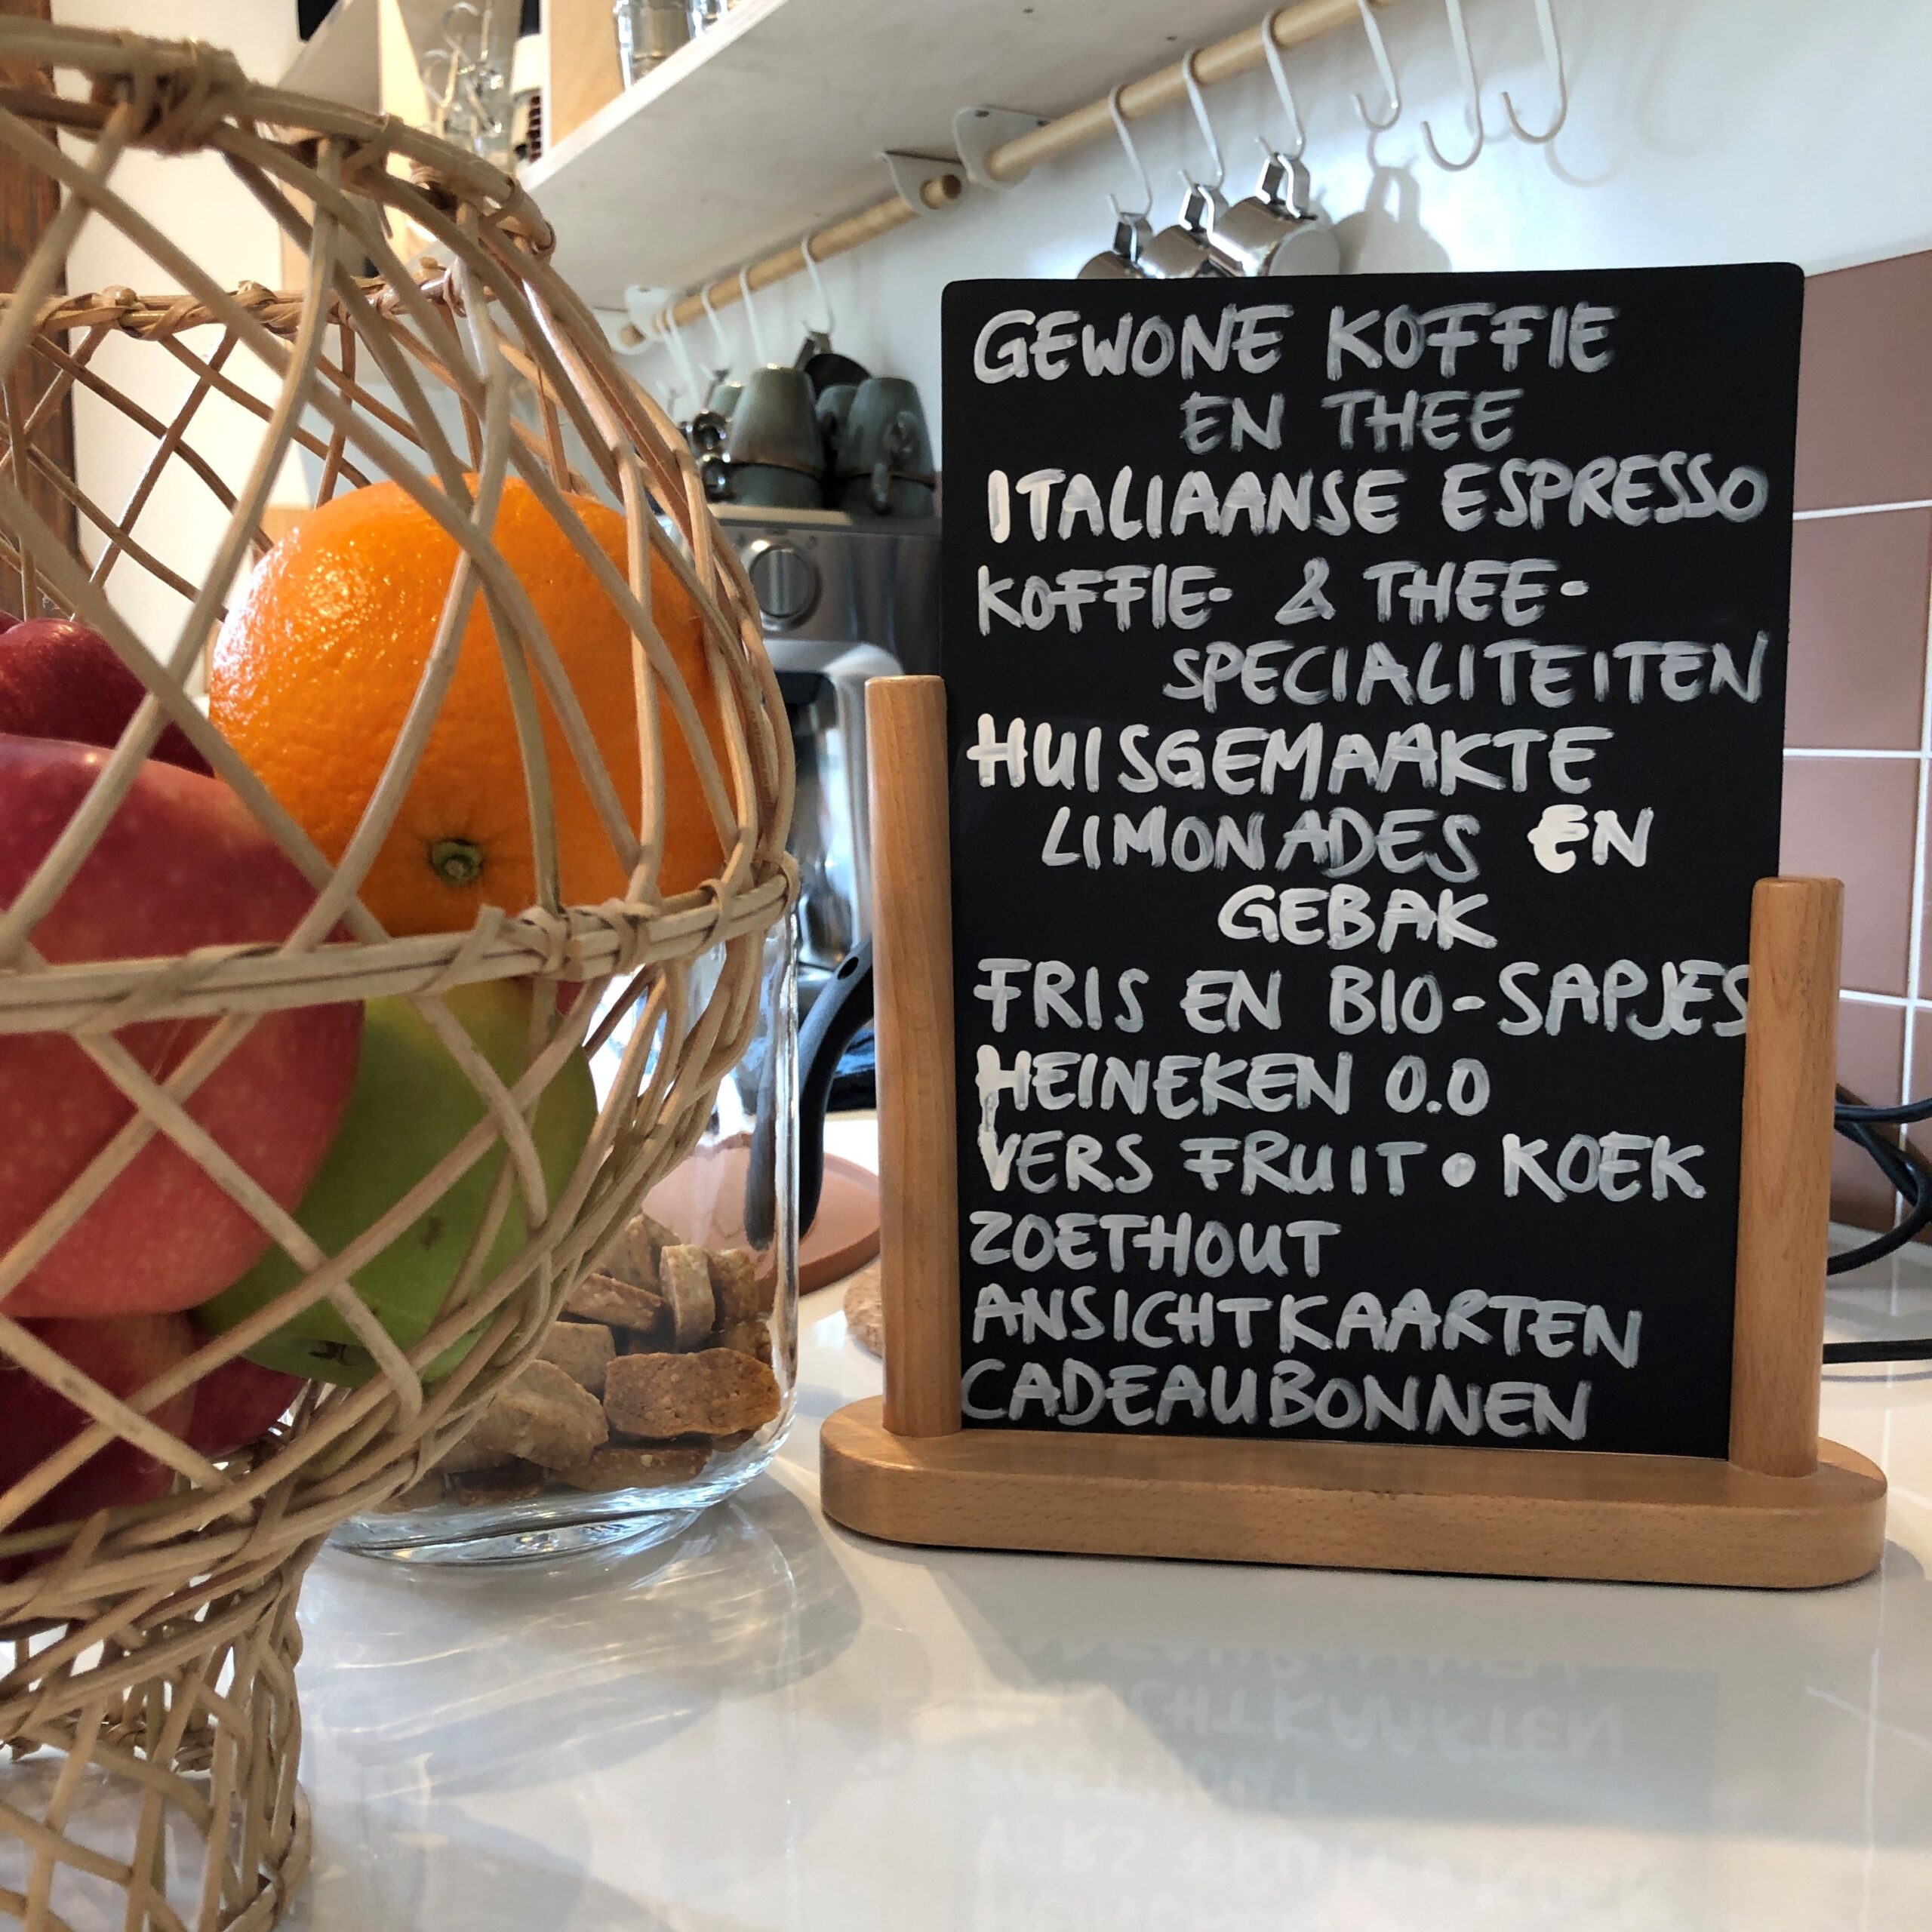 GEWONE KOFFIE
EN THEE
ITALIAANSE ESPRESSO
KOFFIE- & THEE-
SPECIALITEITEN
HUISGEMAAKTE
LIMONADES EN
GEBAK
FRIS EN BIO-SAPJES
HEINEKEN 0.0
VERS FRUIT • KOEK
ZOETHOUT
ANSICHTKAARTEN
CADEAUBONNEN